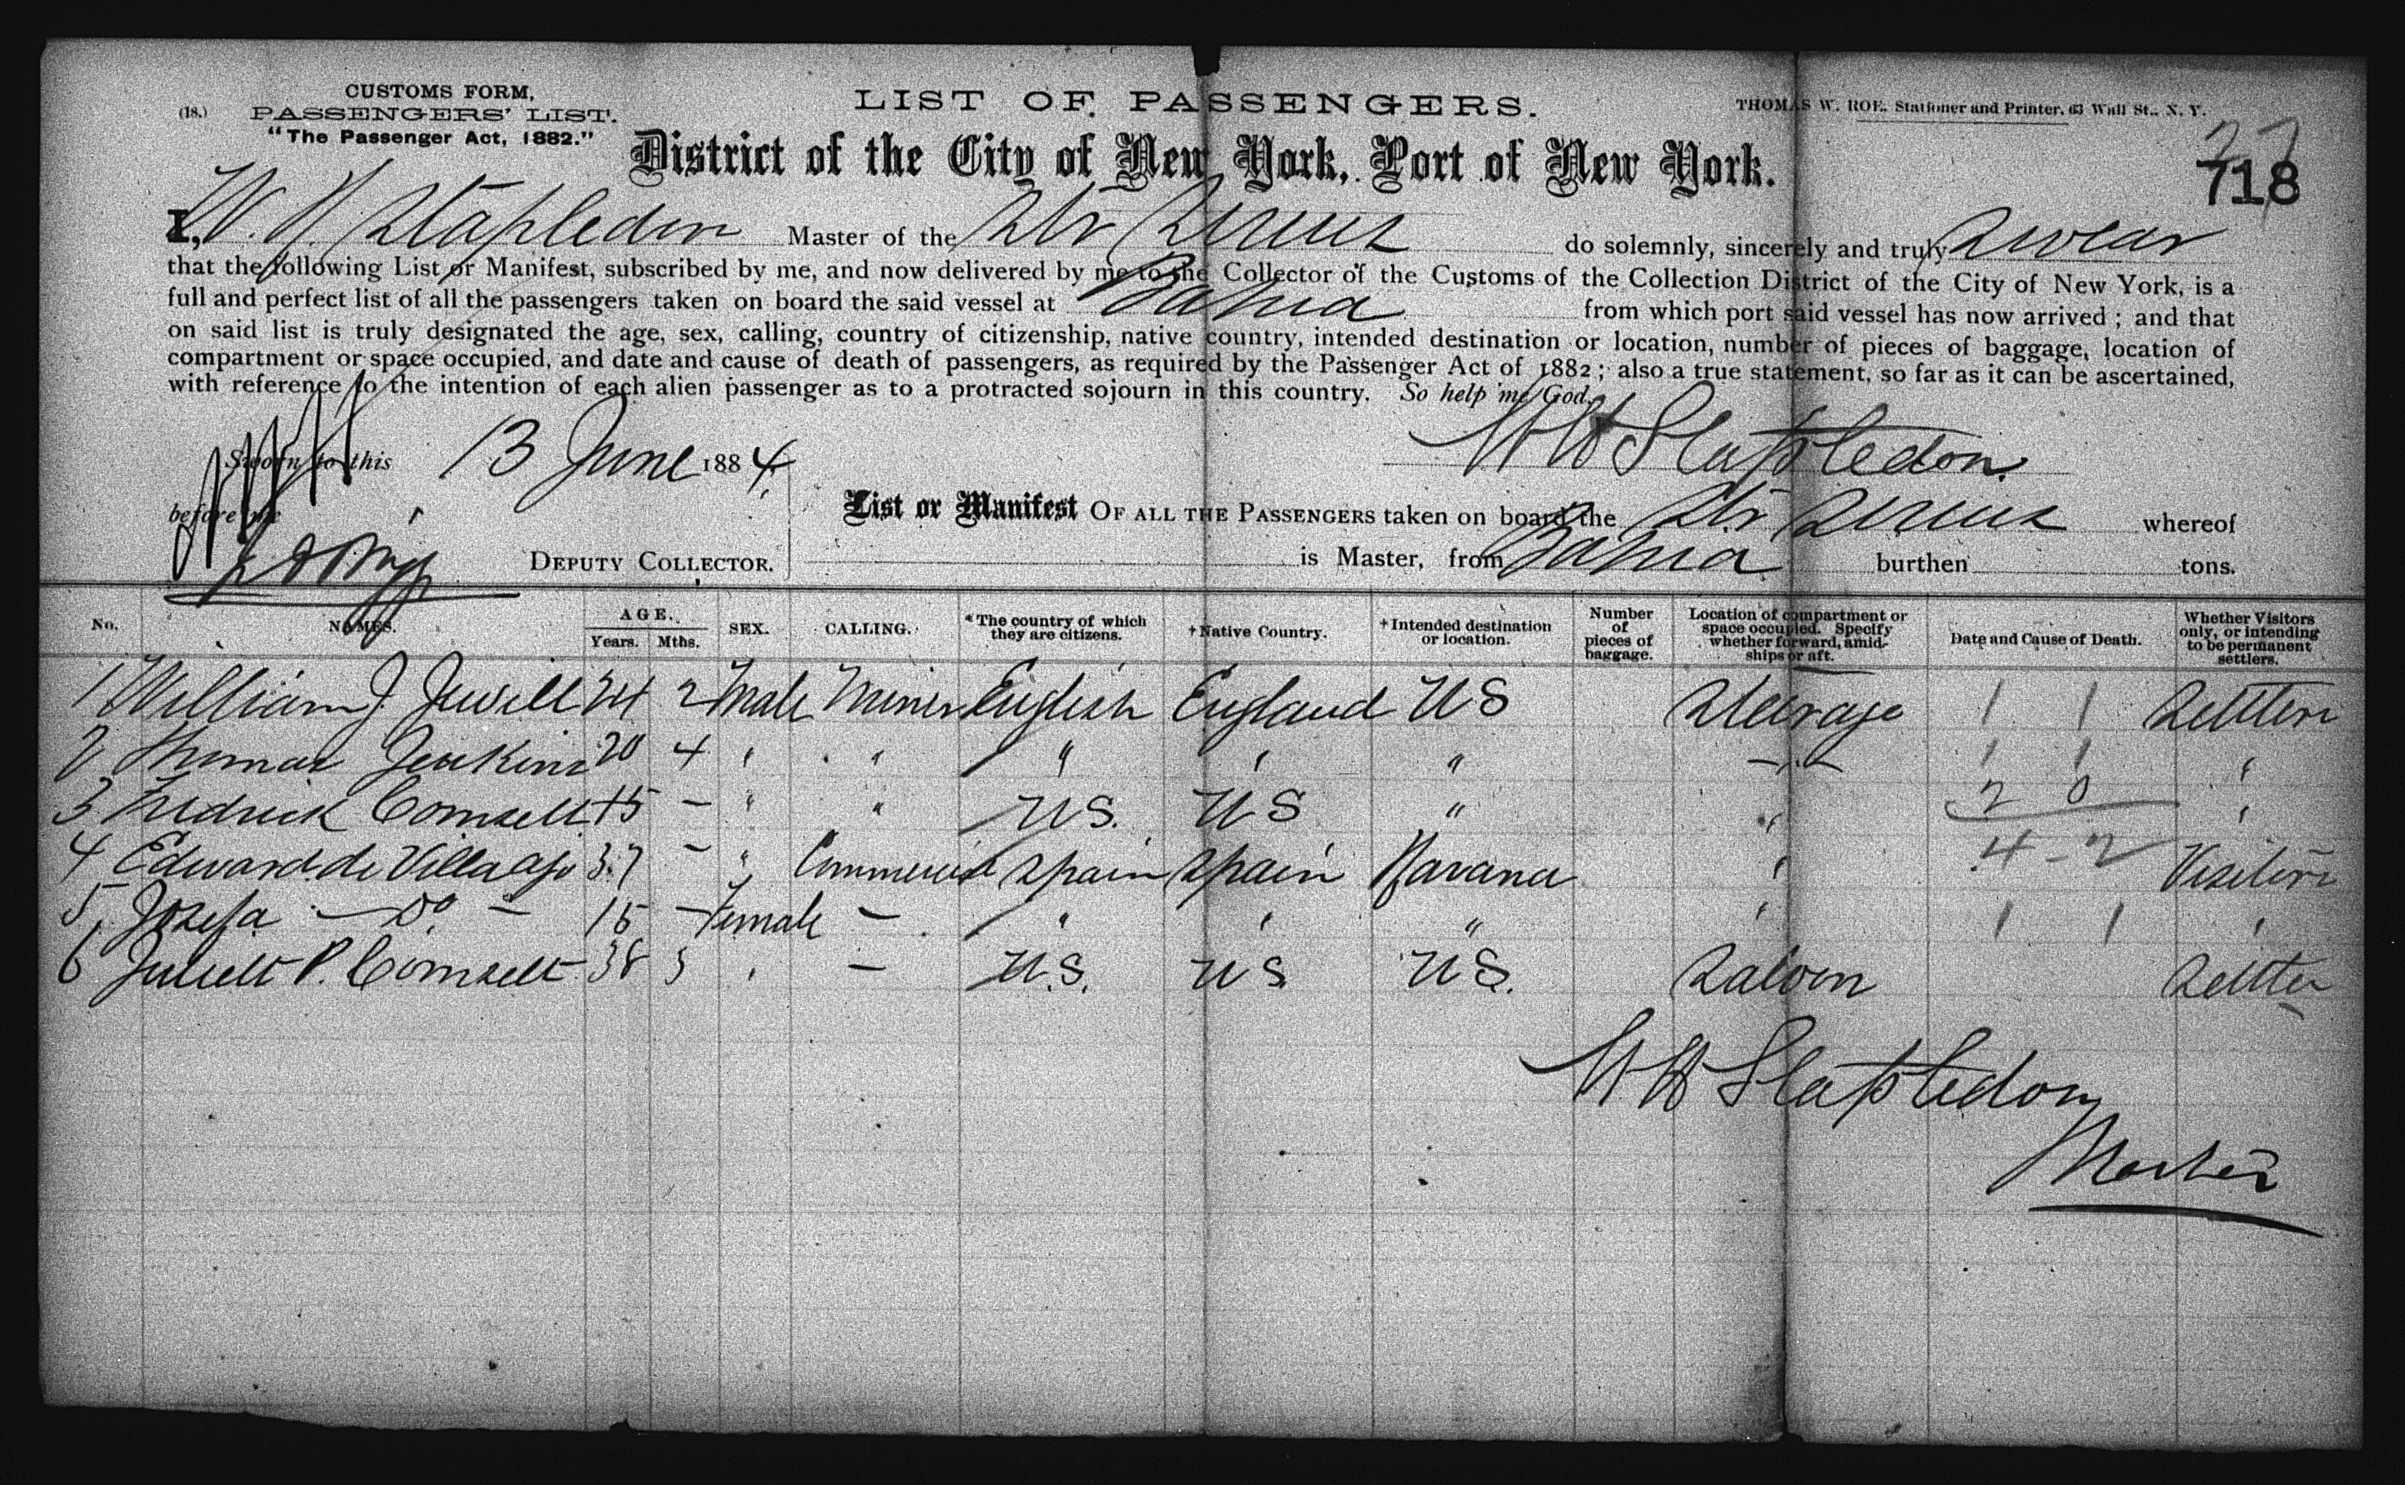 CUSTOMS FORM,
(18.) PASSENGERS' LIST.
"The Passenger Act, 1882."
LIST OF PASSENGERS.
THOMAS W. ROE, Stationer and Printer, 63 Wall St., N. Y.
District of the City of New York, Port of New York.
27
718
I, W. H. Stapledon Master of the Str Sirius do solemnly, sincerely and truly Swear
that the following List or Manifest, subscribed by me, and now delivered by me to the Collector of the Customs of the Collection District of the City of New York, is a
full and perfect list of all the passengers taken on board the said vessel at Bahia from which port said vessel has now arrived; and that
on said list is truly designated the age, sex, calling, country of citizenship, native country, intended destination or location, number of pieces of baggage, location of
compartment or space occupied, and date and cause of death of passengers, as required by the Passenger Act of 1882; also a true statement, so far as it can be ascertained,
with reference to the intention of each alien passenger as to a protracted sojourn in this country. So help me God.
Sworn to this 13 June 1884
WH Stapledon
before me
DEPUTY COLLECTOR.
List or Manifest OF ALL THE PASSENGERS taken on board the Str Sirius whereof
is Master, from Bahia burthen tons.
No. NAMES. AGE. Years. Mths. SEX. CALLING. *The country of which they are citizens. †Native Country. †Intended destination or location. Number of pieces of baggage. Location of compartment or space occupied. Specify whether forward, amidships or aft. Date and Cause of Death. Whether Visitors only, or intending to be permanent settlers.
1 William J. Jewill 24 2 Male Miner English England US Steerage 1 1 Settlers
2 Thomas Jenkins 20 4 " " " " " " 1 1 "
3 Fredrick Comsett 15 - " " U.S. US " " 2 0 "
4 Edward de 37 - " Spain Spain Havana " 4 - 2 Visitors
5 Josefa - Do - 15 - Female - " " " " 1 1 "
6 Juliett P. Comsett 38 5 " - U.S. US U.S. Saloon Settler
WH Stapledon
Master